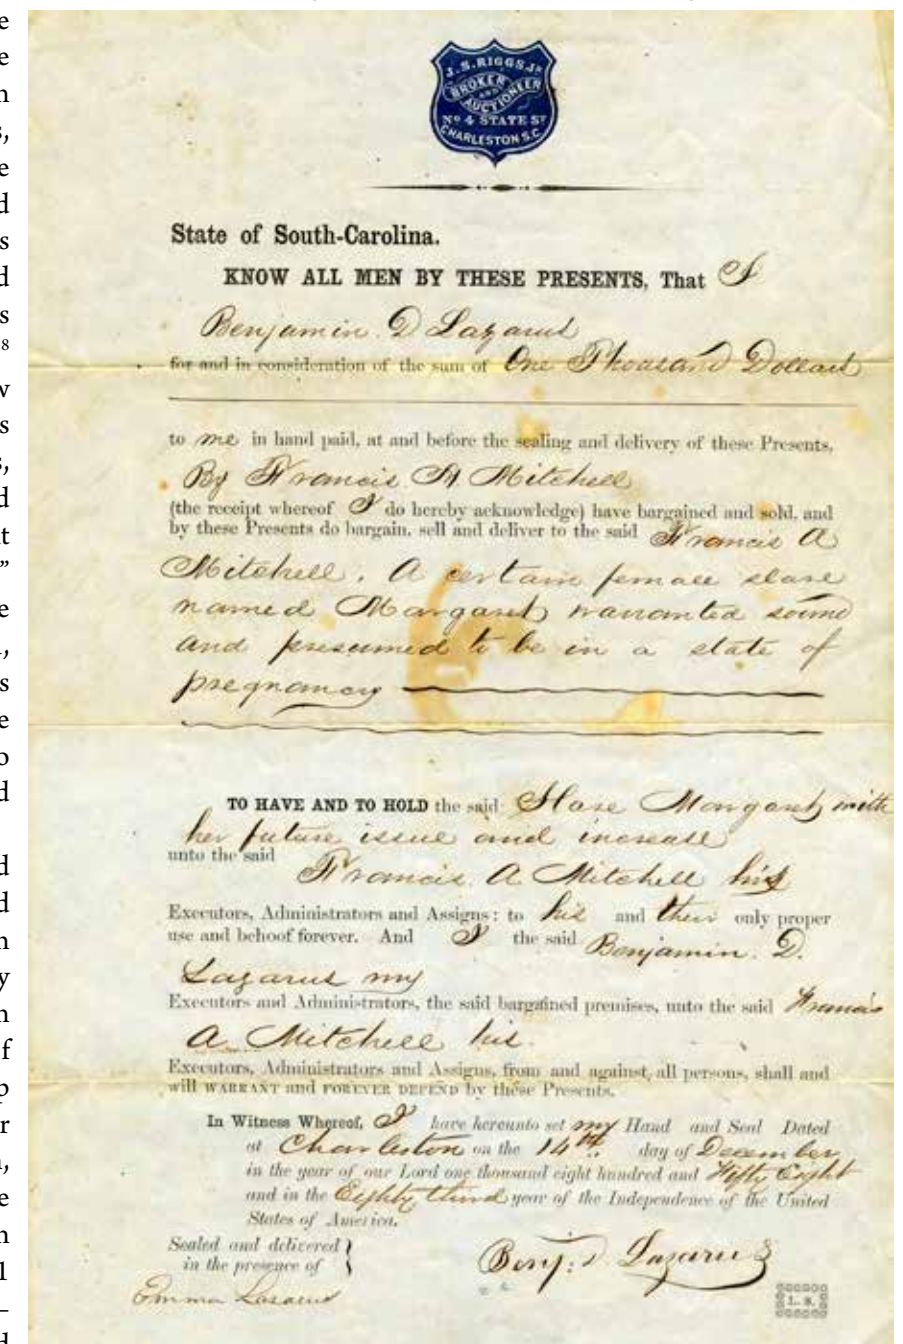 J. S. RIGGS JR
BROKER
AND
AUCTIONEER
No 4 STATE ST
CHARLESTON S.C.
State of South-Carolina.
KNOW ALL MEN BY THESE PRESENTS, That I
Benjamin D Lazarus
for and in consideration of the sum of One Thousand Dollars
to me in hand paid, at and before the sealing and delivery of these Presents,
By Francis A Mitchell
(the receipt whereof I do hereby acknowledge) have bargained and sold, and
by these Presents do bargain, sell and deliver to the said Francis A
Mitchell. A certain female slave
named Margaret warranted sound
and presumed to be in a state of
pregnancy
TO HAVE AND TO HOLD the said Slave Margaret with
her future issue and increase
unto the said
Francis. A Mitchell his
Executors, Administrators and Assigns: to his and their only proper
use and behoof forever. And I the said Benjamin. D.
Lazarus my
Executors and Administrators, the said bargained premises, unto the said Francis
A Mitchell his
Executors, Administrators and Assigns, from and against all persons, shall and
will WARRANT and FOREVER DEFEND by these Presents.
In Witness Whereof, I have hereunto set my Hand and Seal Dated
at Charleston on the 14th day of December
in the year of our Lord one thousand eight hundred and Fifty Eight
and in the Eighty third year of the Independence of the United
States of America.
Sealed and delivered
in the presence of
Benj. D. Lazarus
Emma Lazarus
L. S.